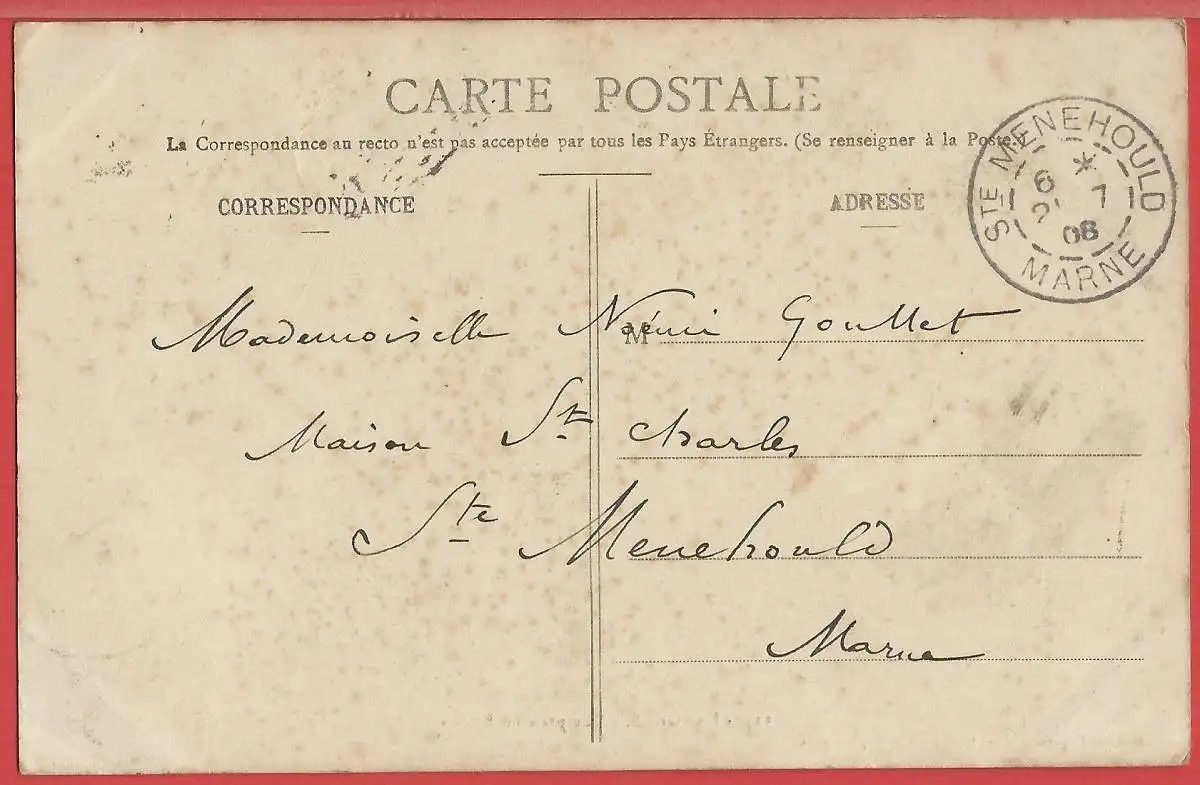 CARTE POSTALE
La Correspondance au recto n'est pas acceptée par tous les Pays Étrangers. (Se renseigner à la Poste.)
CORRESPONDANCE
ADRESSE
STE MENEHOULD
*
6 7
08
MARNE
Mademoiselle Noémi Goullet
M
Maison St Charles
Ste Menehould
Marne